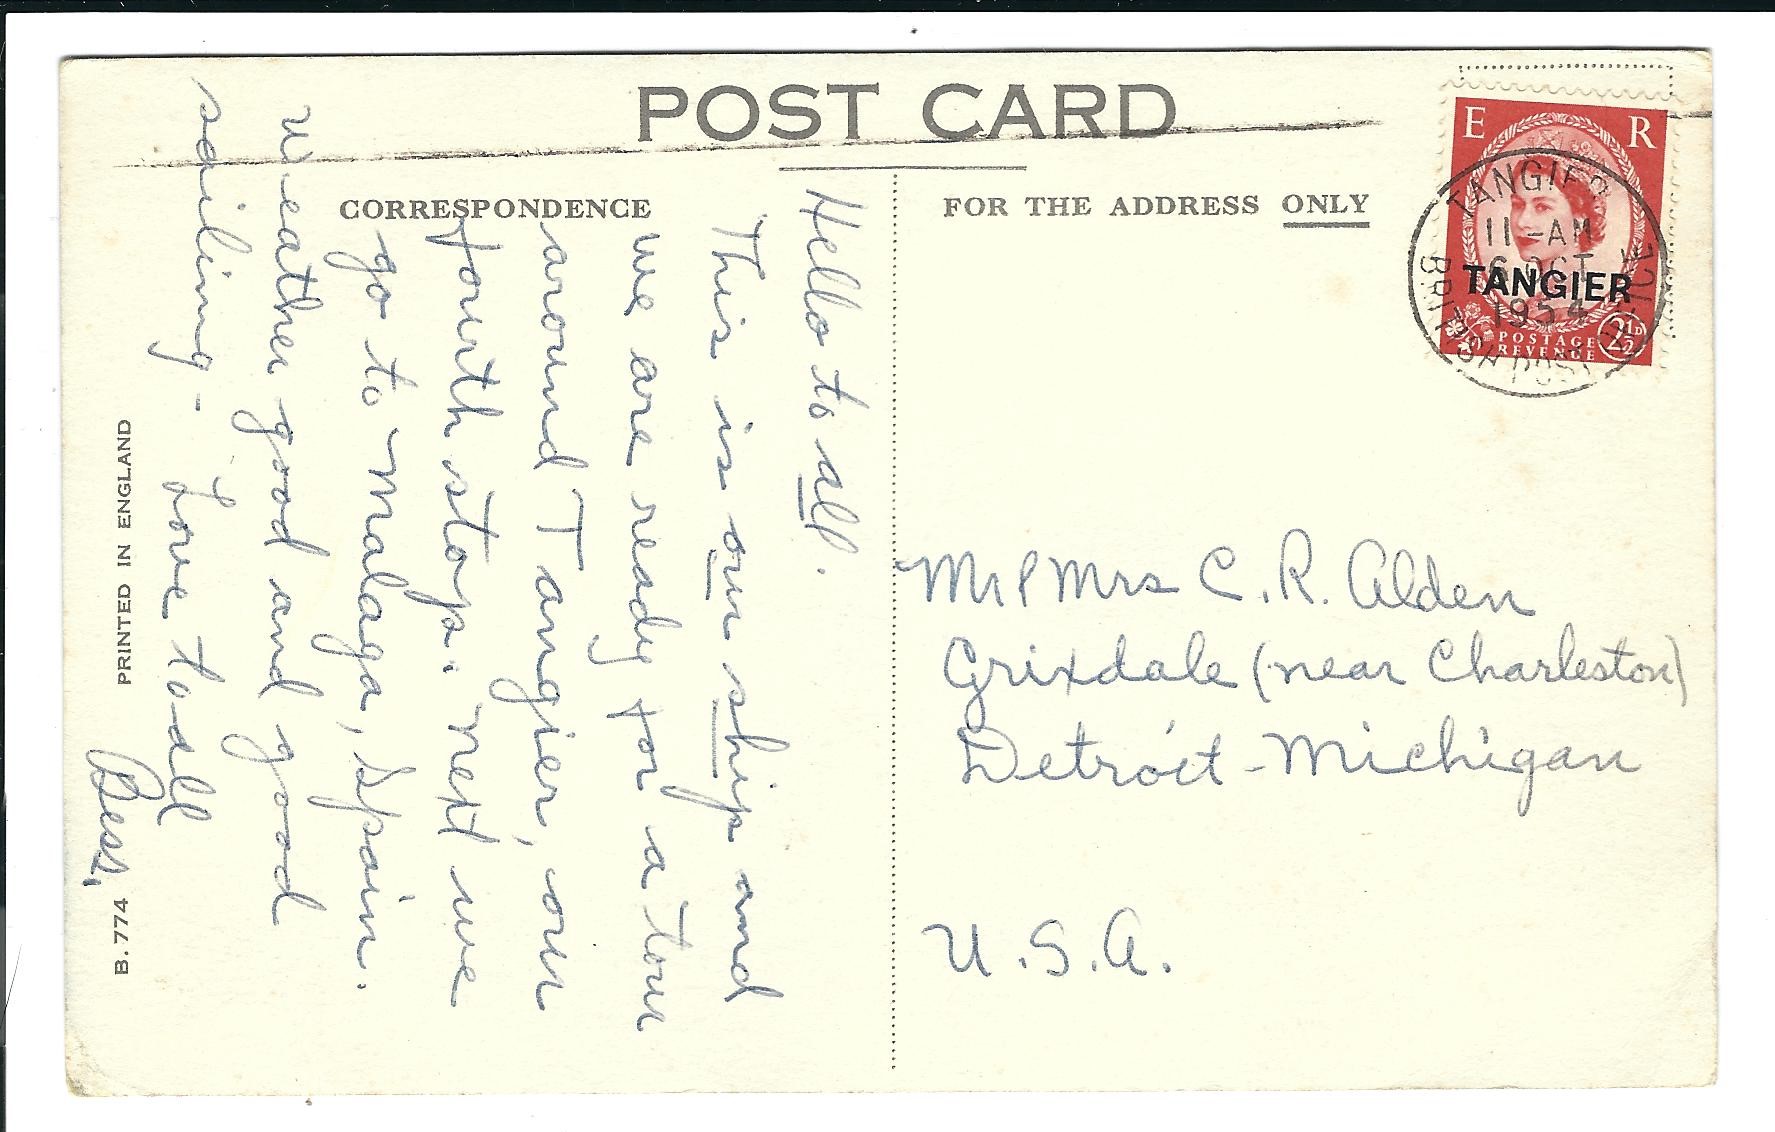 POST CARD
CORRESPONDENCE
FOR THE ADDRESS ONLY
E R
TANGIER
POSTAGE
REVENUE
2½D
TANGIER
11-AM
6 OCT
1954
BRITISH POST OFFICE
Hello to all.
This is our ship and
we are ready for a tour
around Tangier, our
fourth stop. Next we
go to Malaga, Spain.
Weather good and good
sailing - Love to all
Bess.
Mr & Mrs C. R. Alden
Grixdale (near Charleston)
Detroit - Michigan
U.S.A.
PRINTED IN ENGLAND
B. 774